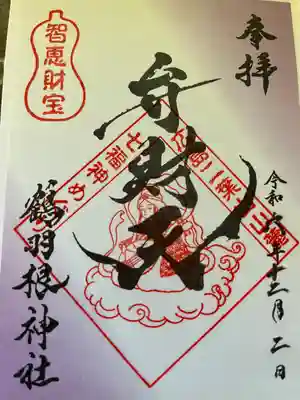 奉拝
智恵財宝
弁財天
七福神め
二葉
令和六年十二月二日
鶴羽根神社